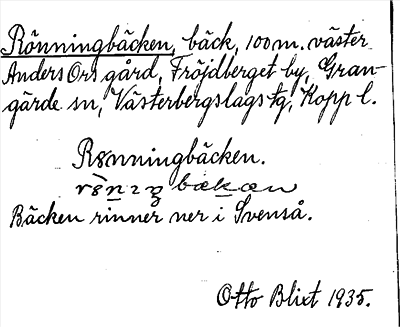 Rönningbäcken, bäck, 100 m. väster
Anders Ors gård, Fröjdberget by, Gran-
gärde sn, Västerbergslags tg, Kopp l.
Rönningbäcken.
Bäcken rinner ner i Svenså.
Otto Blixt 1935.